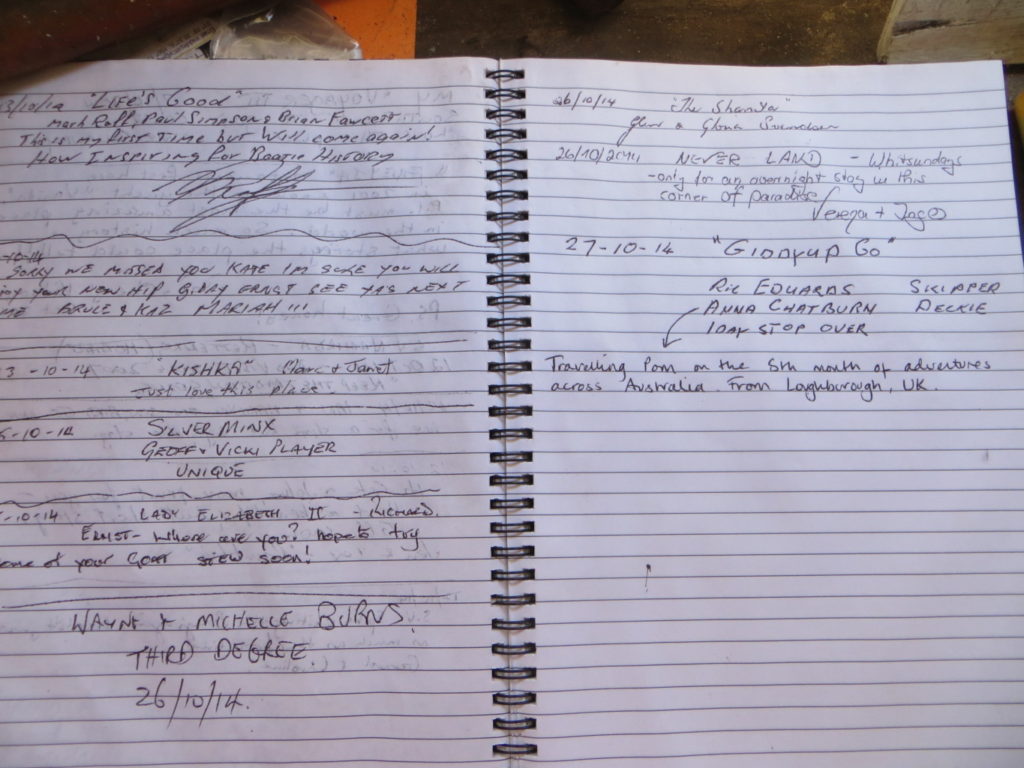 3/10/14 "LIFE'S GOOD"
Mark Roll, Paul Simpson & Brian Fawcett.
This is my FIRST TIME but Will come again!
HOW INSPIRING FOR BOATIE HISTORY
-10-14
SORRY WE MISSED YOU KATE I'M SURE YOU WILL
YOUR NEW HIP. G,DAY ERNST SEE YAS NEXT
BRUCE & KAZ MARIAH !!!
3-10-14 "KISHKA" Marc & Janet
Just love this place.
-10-14 SILVER MINX
GEOFF & VICKI PLAYER
UNIQUE
-10-14 LADY ELIZABETH II - RICHARD.
ERNST - Where are you? hope to try
some of your GOAT STEW SOON!
WAYNE & MICHELLE BURNS.
THIRD DEGREE
26/10/14.
26/10/14 "The
& Glenda
26/10/2014 NEVER LAND - Whitsundays
- only for an overnight stay in this
corner of paradise
Verena +
27-10-14 "GIDDYUP GO"
RIC EDWARDS SKIPPER
ANNA CHATBURN DECKIE
1 DAY STOP OVER
Travelling Pom on the 5th month of adventures
across Australia. From Loghborough, UK.